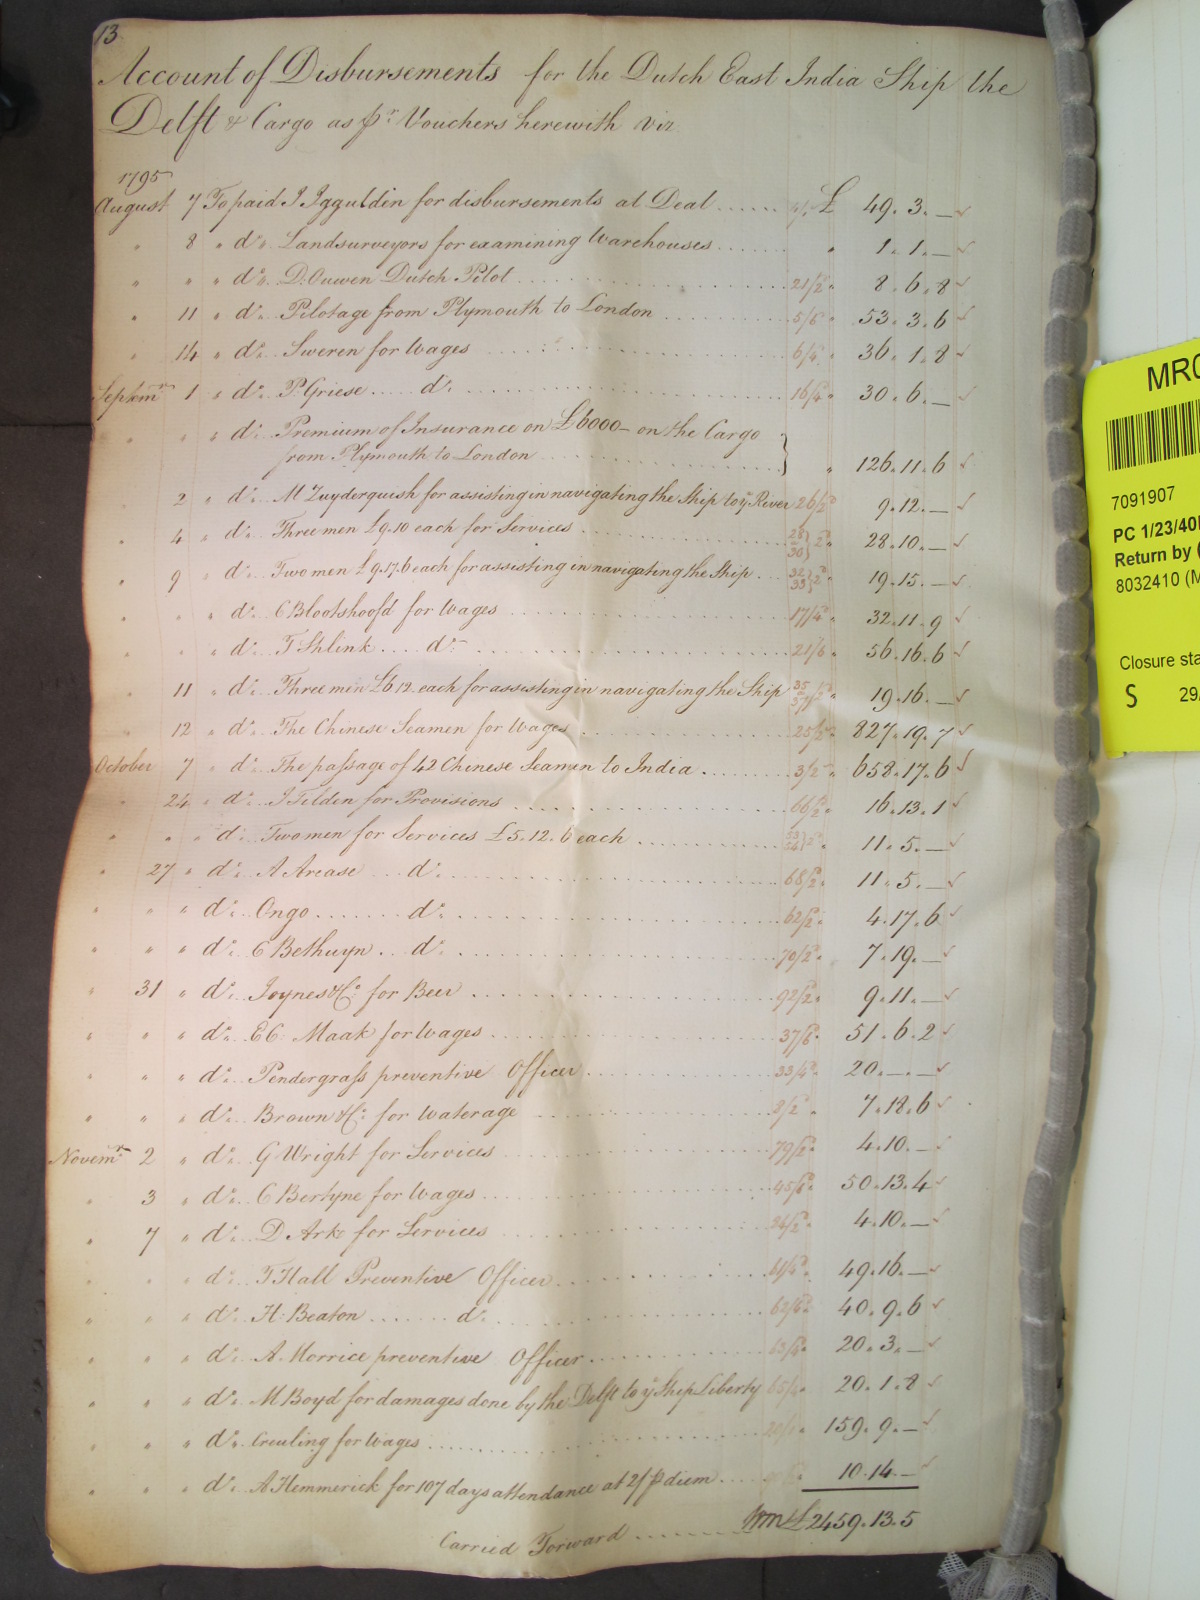 13
Account of Disbursements for the Dutch East India Ship the
Delft & Cargo as pr. Vouchers herewith viz
1795
August 7 To paid J Iggulden for disbursements at Deal ...... £ 49. 3. —
" 8 " do. Landsurveyors for examining Warehouses ...... " 1. 1. —
" " " do. D. Ouwen Dutch Pilot ...... 21/2 " 8. 6. 8
" 11 " do. Pilotage from Plymouth to London ...... 5/6 " 53. 3. 6
" 14 " do. Sweren for Wages ...... 6/4 " 36. 1. 8
Septemr. 1 " do. P. Griese .... do. ...... 16/4 " 30. 6. —
" " " do. Premium of Insurance on £6000 — on the Cargo
from Plymouth to London ...... } " 126. 11. 6
2 " do. M Zuyderquish for assisting in navigating the Ship to ye River 26/2 9. 12. —
" 4 " do. Three men £9.10 each for Services ...... 28 30 } 2 " 28. 10. —
" 9 " do. Two men £9.17.6 each for assisting in navigating the Ship ... 32 33 } 2 " 19. 15. —
" " " do. C Blootshoofd for Wages ...... 17/4 " 32. 11. 9
" " " do. T Shlink .... do. ...... 21/6 " 56. 16. 6
" 11 " do. Three men £6 12. each for assisting in navigating the Ship 35 37 " 19. 16. —
" 12 " do. The Chinese Seamen for Wages ...... 25/2 " 827. 19. 7
October 7 " do. The passage of 42 Chinese Seamen to India ...... 3/2 " 658. 17. 6
" 24 " do. J Tilden for Provisions ...... 66/2 16. 13. 1
" " " do. Two men for Services £5. 12. 6 each ...... " 11. 5. —
" 27 " do. A Arease ... do. ...... 68/2 " 11. 5. —
" " " do. Ongo ....... do. ...... 62/2 " 4. 17. 6
" " " do. C Bethuyn .. do. ...... 70/2 " 7. 19. —
" 31 " do. Joynes & Co. for Beer ...... 92/2 " 9. 11. —
" " " do. E C. Maak for Wages ...... 37/6 " 51. 6. 2
" " " do. Pendergrass preventive Officer ...... 33/4 " 20. — . —
" " " do. Brown & Co. for Waterage ...... 2/2 " 7. 18. 6
Novemr. 2 " do. G Wright for Services ...... 79/2 " 4. 10. —
" 3 " do. C Bertyne for Wages ...... 45/6 " 50. 13. 4
" 7 " do. D Ark for Services ...... " 4. 10. —
" " " do. T Hall Preventive Officer ...... " 49. 16. —
" " " do. H. Beaton ....... do. ...... " 40. 9. 6
" " " do. A. Morrice preventive Officer ...... 20. 3. —
" " " do. M Boyd for damages done by the Delft to ye Ship Liberty 20. 1. 8
" " " do. Creuling for Wages ...... 159. 9. —
" " " do. A Hemmerick for 107 days attendance at 2/ p diem .... 10. 14. —
Carried Forward ....... £2459. 13. 5
MR0
7091907
PC 1/23/40
Return by (
8032410 (M
Closure sta
S 29/